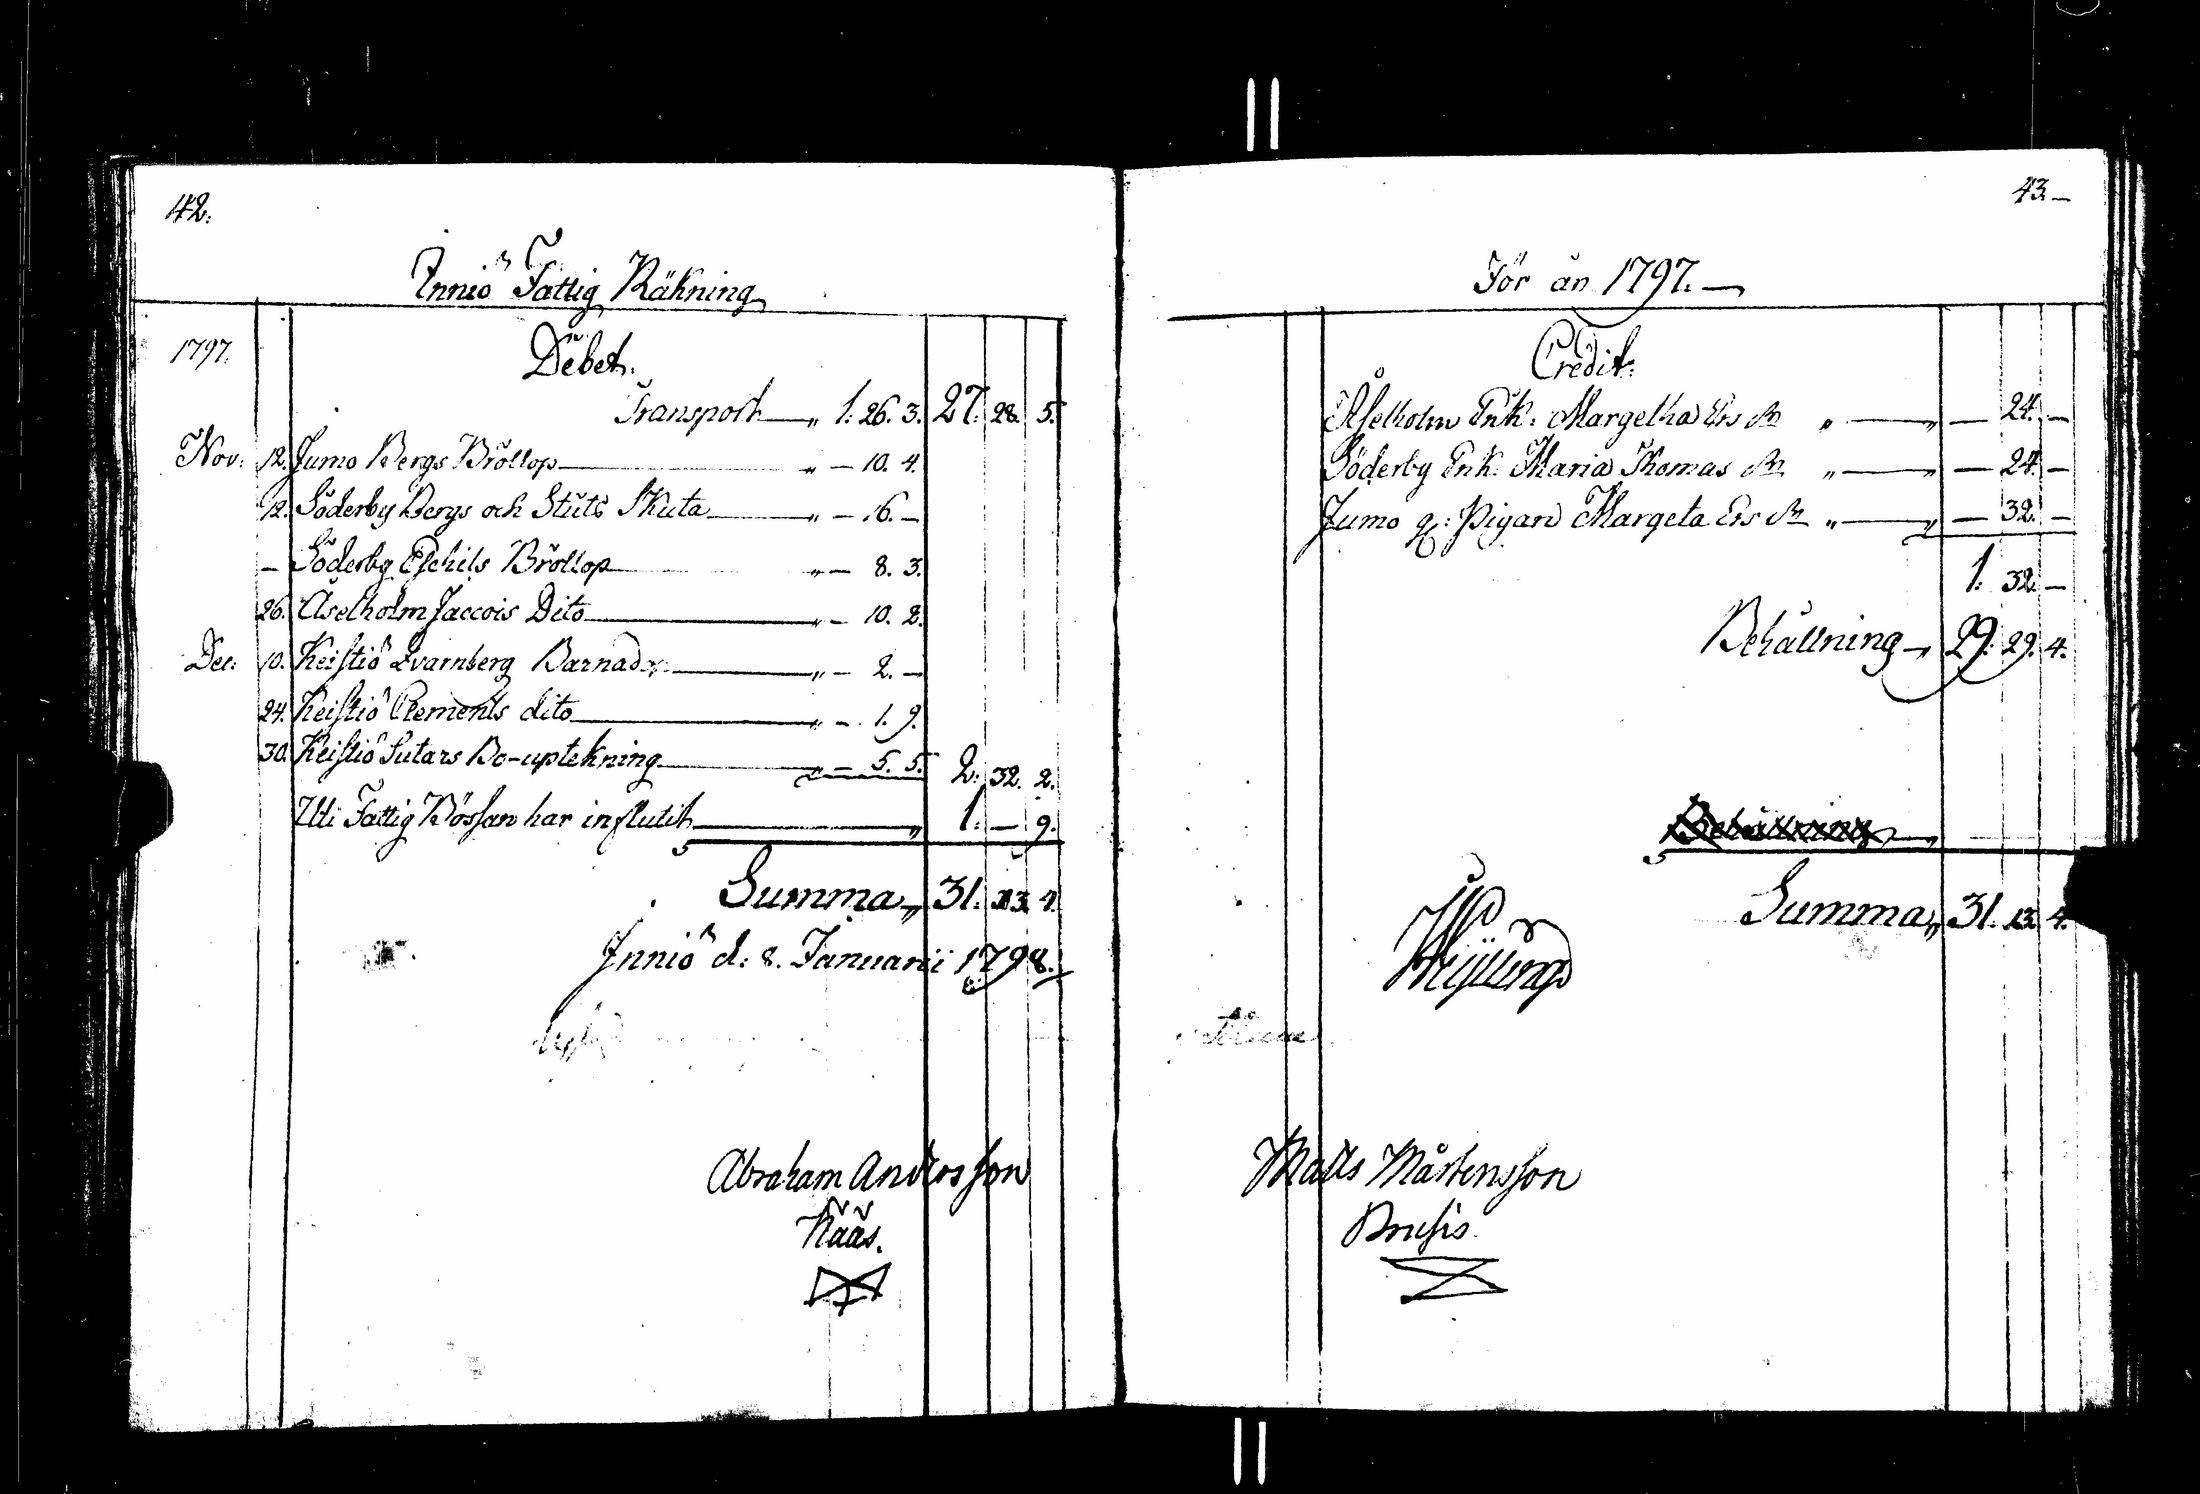 42.
Inniö Fattig Räkning
1797. Debet.
Transport — " 1: 26. 3. 27: 28. 5.
Nov: 12. Jumo Bergs Bröllop — " — 10. 4.
12. Söderby Bergs och Stuts Skuta — " — 16. —
— Söderby Eschils Bröllop — " — 8. 3.
26. Åselholm Jaccois Dito — " — 10. 2.
Dec: 10. Keistiö Qvarnberg Barnadop — " — 2. —
24. Keistiö Clements dito — " — 1. 9.
30. Keistiö Sutars Bo-uptekning — " — 5. 5. 2: 32. 2.
Uti Fattig Bössan har influtit — " 1: — 9.
Summa " 31: 13. 4.
Inniö d: 8. Januarii 1798.
Abraham Andersson
Näås.
43. —
För år 1797. —
Credit:
Åselholm Enk: Margetha Ers dr " — " — 24. —
Söderby Enk: Maria Thomas dr " — " — 24. —
Jumo g: Pigan Margeta Ers dr " — " — 32. —
1: 32. —
Behållning — " 29: 29. 4.
Summa " 31: 13. 4.
Matts Mårtensson
Brusis